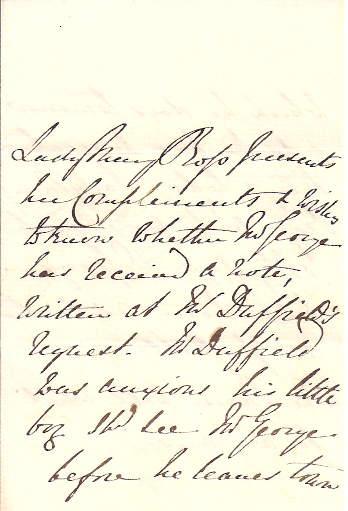 Lady Mary Ross presents
her Compliments & wishes
to know whether Mr George
has received a note,
written at Mr Duffield's
request. Mr Duffield
was anxious his little
boy shd. see Mr George
before he leaves town